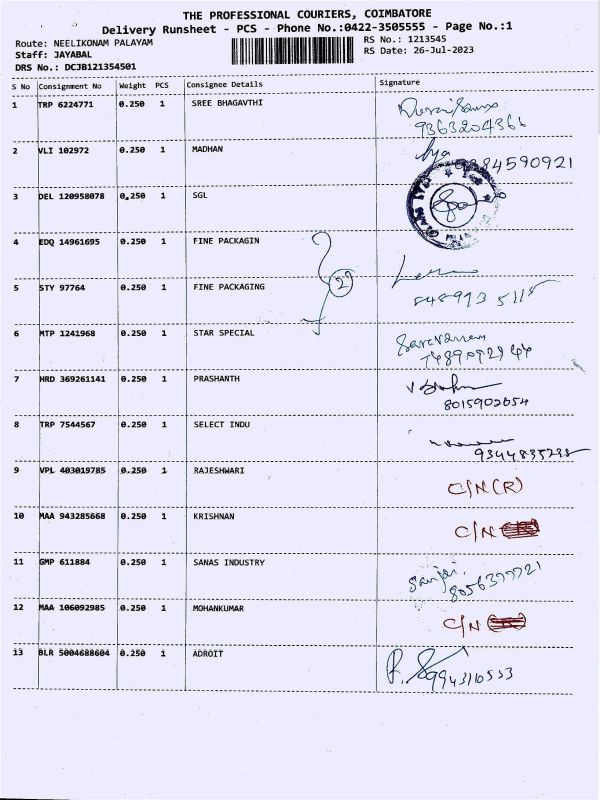 THE PROFESSIONAL COURIERS, COIMBATORE
Delivery Runsheet - PCS - Phone No.:0422-3505555 - Page No.:1
Route: NEELIKONAM PALAYAM RS No.: 1213545
Staff: JAYABAL RS Date: 26-Jul-2023
DRS No.: DCJB121354501
S No Consignment No Weight PCS Consignee Details Signature
1 TRP 6224771 0.250 1 SREE BHAGAVTHI
9363204366
2 VLI 102972 0.250 1 MADHAN
3 DEL 120958078 0.250 1 SGL
4 EDQ 14961695 0.250 1 FINE PACKAGIN
2
5 STY 97764 0.250 1 FINE PACKAGING
6 MTP 1241968 0.250 1 STAR SPECIAL Saravanan
7 HRD 369261141 0.250 1 PRASHANTH
8015902654
8 TRP 7544567 0.250 1 SELECT INDU
9 VPL 403019785 0.250 1 RAJESHWARI C/N (R)
10 MAA 943285668 0.250 1 KRISHNAN C/N
11 GMP 611884 0.250 1 SANAS INDUSTRY Sanjai
12 MAA 106092985 0.250 1 MOHANKUMAR C/N
13 BLR 5004688604 0.250 1 ADROIT
9943110553